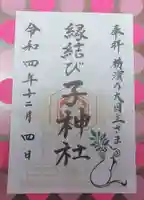 奉拝 横濱の大国主さま
縁結び
子神社
令和四年十二月四日